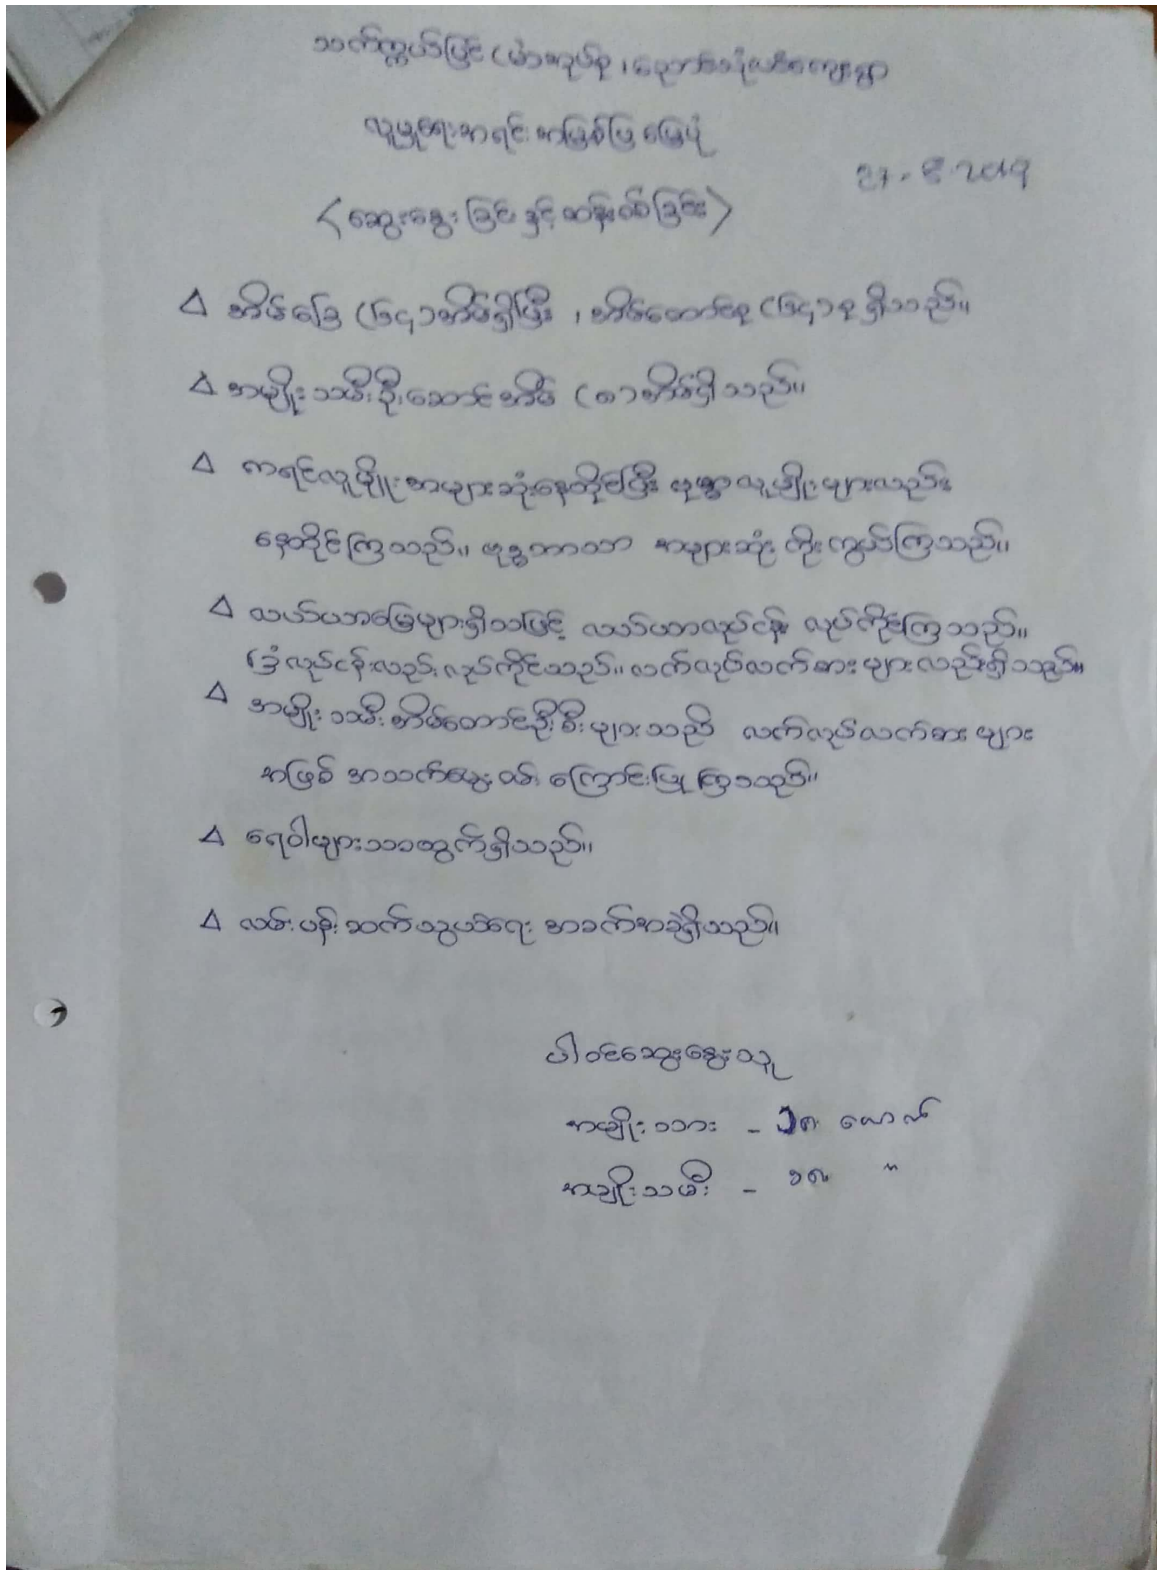 သက်ကယ်ပြင် ကျေးရွာ
လူမှုရေးအရင်းအမြစ်ပြ မြေပုံ
၂၇ - ၉ - ၂၀၁၇
<ဆွေးနွေးခြင်းနှင့်ဆန်းစစ်ခြင်း>
Δ အိမ်ခြေ (၆၄) အိမ်ရှိပြီး ၊ အိမ်ထောင်စု (၆၄) စု ရှိသည်။
Δ အမျိုးသမီးဦးဆောင်အိမ် (၈) အိမ်ရှိသည်။
Δ ကရင်လူမျိုး အများဆုံးနေထိုင်ပြီး ဗမာလူမျိုးများလည်း
နေထိုင်ကြသည်။ ဗုဒ္ဓဘာသာ အများဆုံး ကိုးကွယ်ကြသည်။
Δ လယ်ယာမြေများရှိသဖြင့် လယ်ယာလုပ်ငန်း လုပ်ကိုင်ကြသည်။
ခြံလုပ်ငန်းလည်း လုပ်ကိုင်သည်။ လက်လုပ်လက်စားများလည်းရှိသည်။
Δ အမျိုးသမီးအိမ်ထောင်ဦးစီးများသည် လက်လုပ်လက်စားများ
အဖြစ် အသက်မွေးဝမ်းကြောင်းပြုကြသည်။
Δ ရေဝါများသာထွက်ရှိသည်။
Δ လမ်းပန်းဆက်သွယ်ရေး အခက်အခဲရှိသည်။
ပါဝင်ဆွေးနွေးသူ
အမျိုးသား - ၁၈ ယောက်
အမျိုးသမီး - ၁၈ "